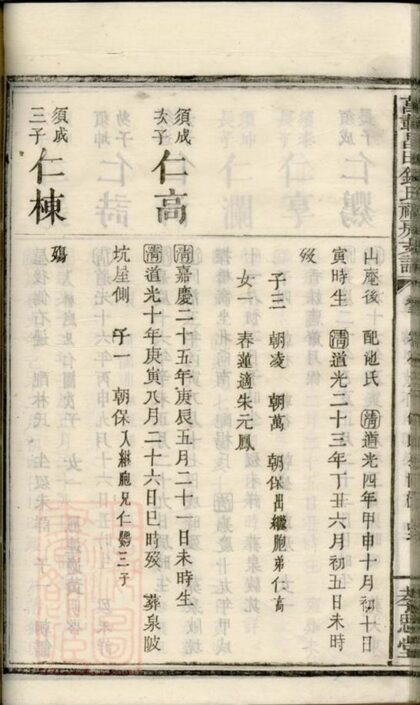 孝思堂
山庵後 配龍氏 清道光四年甲申十月初十日
寅時生 清道光二十三年丁丑六月初五日未時
歿
子三 朝凌 朝萬 朝保出繼胞弟仁高
女一 春蓮適朱元鳳
須成
次子
仁高
清嘉慶二十五年庚辰五月二十一日未時生
清道光十年庚寅八月二十六日巳時歿 葬泉陂
坑屋側 子一 朝保入繼胞兄仁鸚三子
須成
三子
仁棟
殤